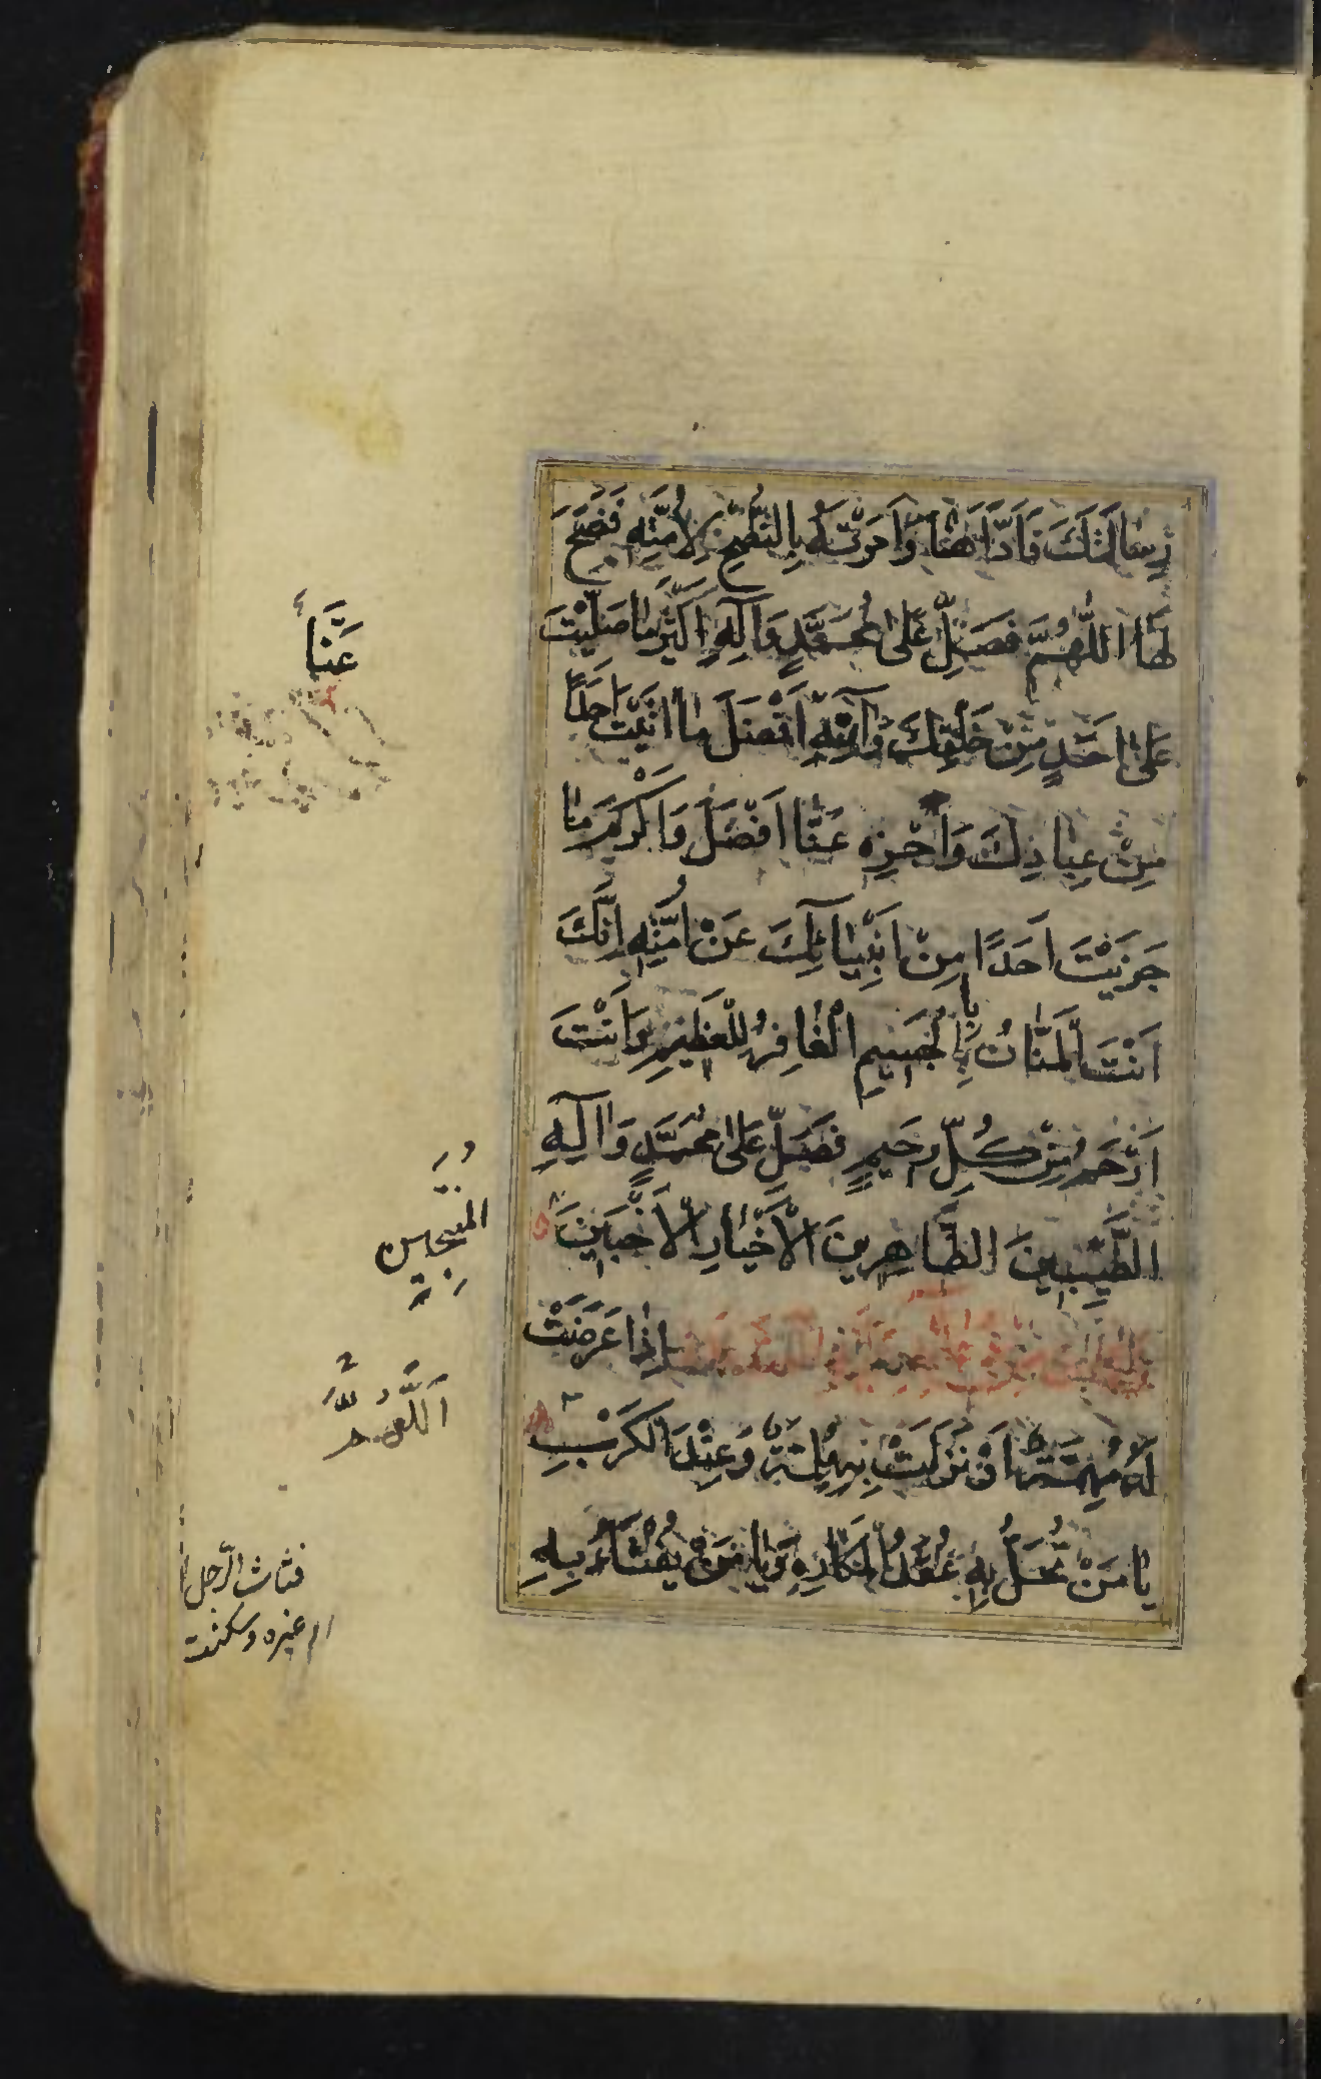 رِسَالَتَكَ فَاَدَّاهَا وَاَمَرْتَهُ بِالنُّصْحِ لِاُمَّتِهِ فَنَصَحَ
لَهَا اَللّٰهُمَّ فَصَلِّ عَلٰى مُحَمَّدٍ وَآلِهِ اَكْثَرَ مَا صَلَّيْتَ
عَلٰى اَحَدٍ مِنْ خَلْقِكَ وَآتِهِ اَفْضَلَ مَا اٰتَيْتَ اَحَدًا
مِنْ عِبَادِكَ وَاَجْزِهِ عَنَّا اَفْضَلَ وَاَكْرَمَ مَا
جَزَيْتَ اَحَدًا مِنْ اَنْبِيَائِكَ عَنْ اُمَّتِهِ اِنَّكَ
اَنْتَ الْمَنَّانُ بِالْجَسِيمِ الْغَافِرُ لِلْعَظِيمِ وَاَنْتَ
اَرْحَمُ مِنْ كُلِّ رَحِيمٍ فَصَلِّ عَلٰى مُحَمَّدٍ وَاٰلِهِ
الطَّيِّبِينَ الطَّاهِرِينَ الْاَخْيَارِ الْاَنْجَبِينَ
اِذَا عَرَضَتْ
لَهُ مُهِمَّةٌ اَوْ نَزَلَتْ بِهِ مُلِمَّةٌ وَعِنْدَ الْكَرْبِ
يَا مَنْ تُحَلُّ بِهِ عُقَدُ الْمَكَارِهِ وَيَا مَنْ يُفْثَأُ بِهِ
عَنَّا
المنتجبين
اَللّٰهُمَّ
فثأت الرجل
غيره وسكنت